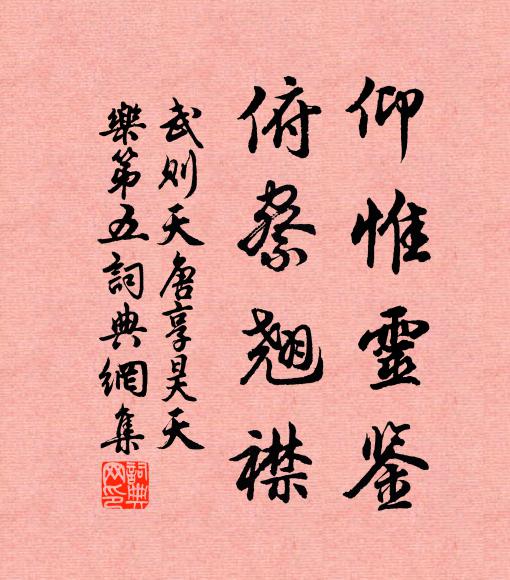 仰惟靈鉴
俯察翘襟
武则天唐享昊天
樂第五詞典網集
詞典网印